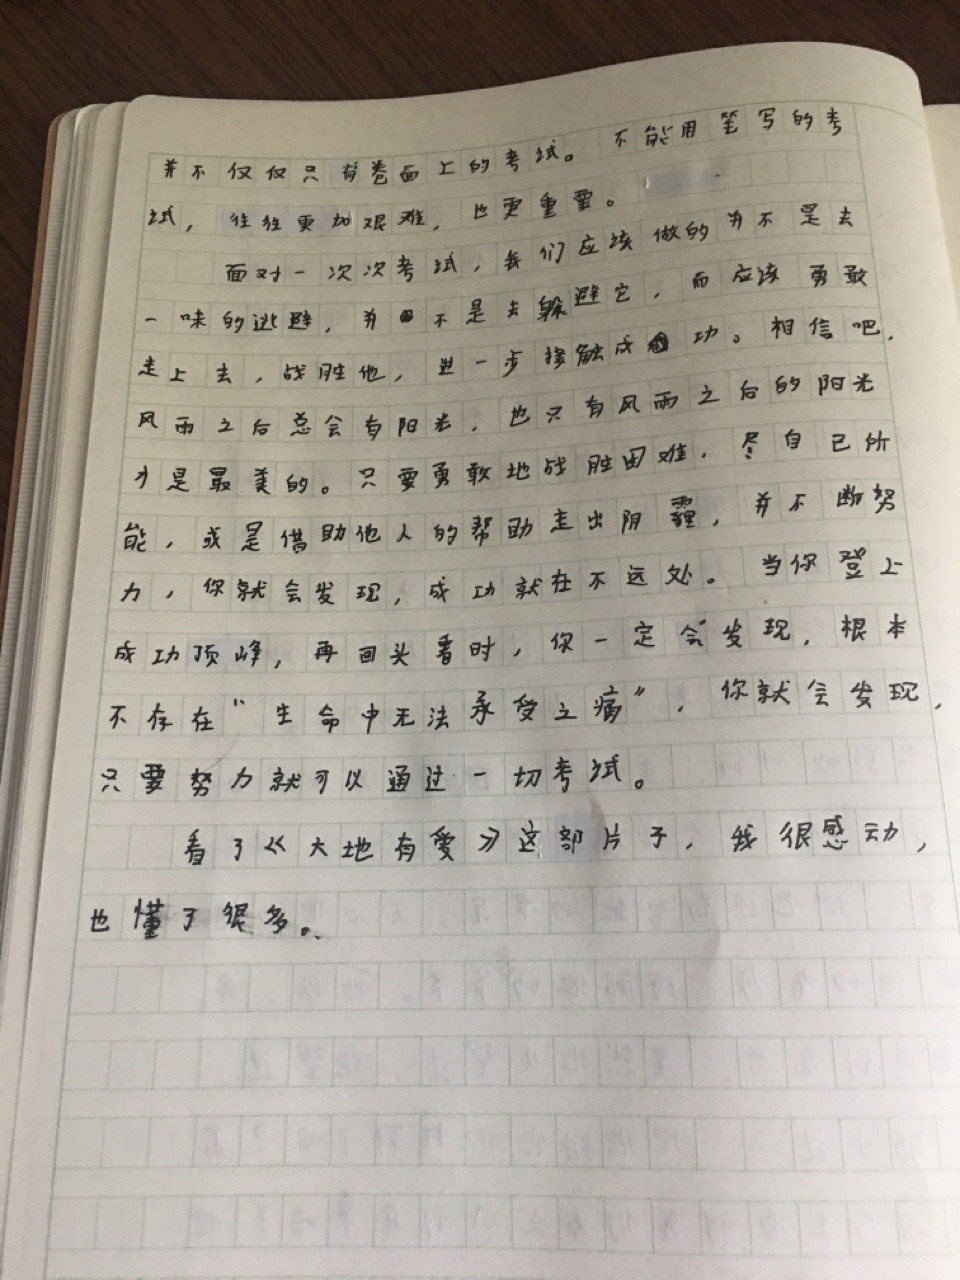 并不仅仅只有卷面上的考试。不能用笔写的考
试，往往更加艰难，也更重要。
面对一次次考试，我们应该做的并不是去
一味的逃避，并不是去躲避它，而应该勇敢
走上去，战胜他，进一步接触成功。相信吧，
风雨之后总会有阳光，也只有风雨之后的阳光
才是最美的。只要勇敢地战胜困难，尽自己所
能，或是借助他人的帮助走出阴霾，并不断努
力，你就会发现，成功就在不远处。当你登上
成功顶峰，再回头看时，你一定会发现，根本
不存在“生命中无法承受之痛”，你就会发现，
只要努力就可以通过一切考试。
看了《大地有爱》这部片子，我很感动，
也懂了很多。